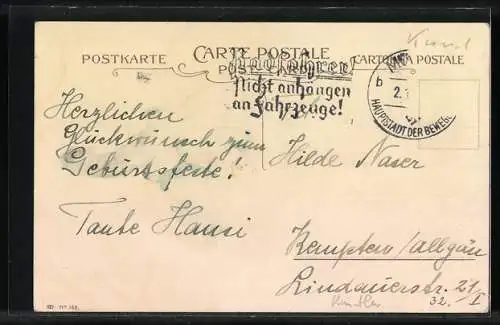 Kunst
POSTKARTE CARTE POSTALE CARTOLINA POSTALE
POSTCARD
Radfahrer
Nicht anhängen
an Fahrzeuge!
b 2.
HAUPTSTADT DER BEWEG
Herzlichen
Glückwunsch zum
Geburtsfeste!
Tante Hansi
Hilde Naser
Kempten/Allgäu
Lindauerstr. 21/I
32.